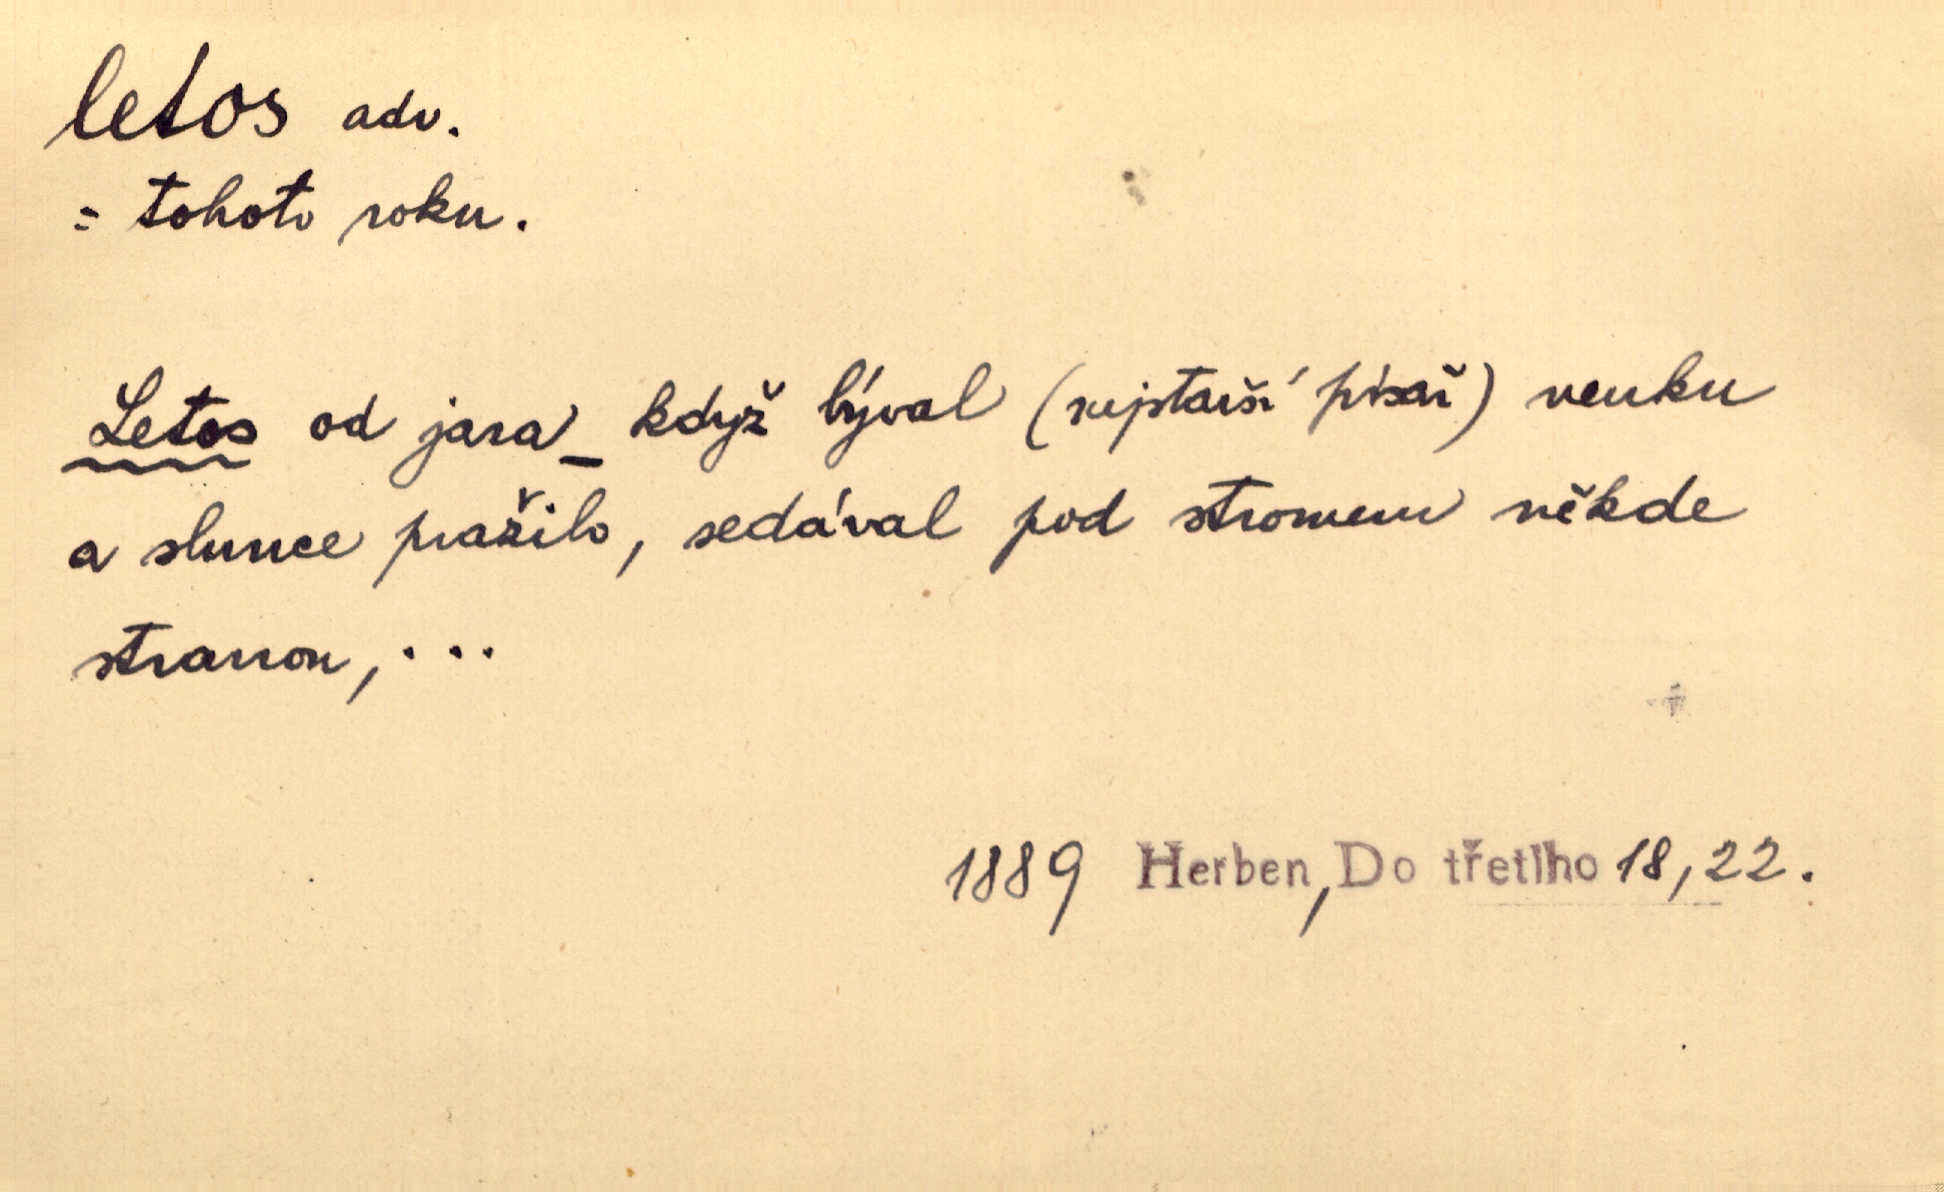 letos adv.
= tohoto roku.
Letos od jara_ když býval (nejstarší písař) venku
a slunce pražilo, sedával pod stromem někde
stranou, ...
1889 Herben, Do třetího 18, 22.